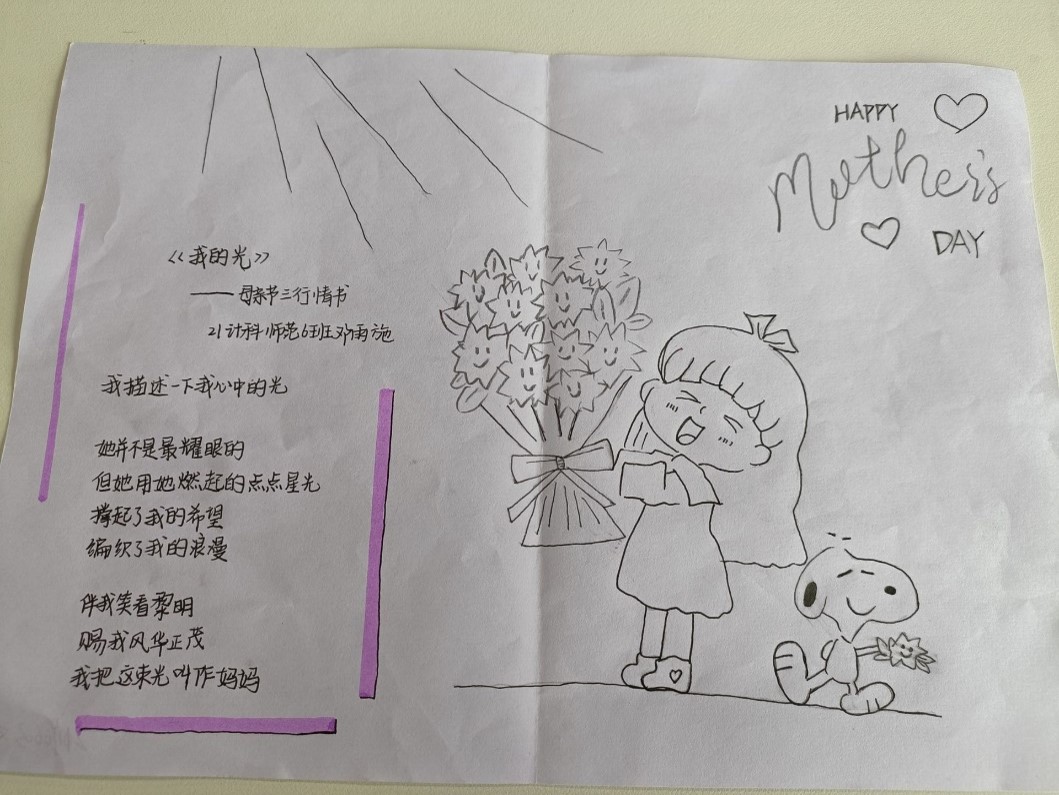 《我的光》
——母亲节三行情书
21计科师范6班邓雨施
我描述一下我心中的光
她并不是最耀眼的
但她用她燃起的点点星光
撑起了我的希望
编织了我的浪漫
伴我笑看黎明
赐我风华正茂
我把这束光叫作妈妈
HAPPY
Mother's
DAY